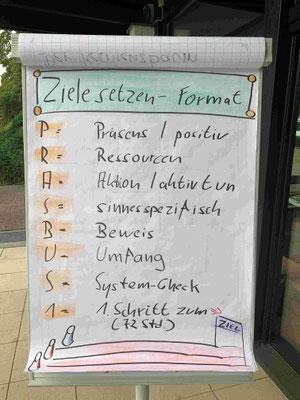 Ziele setzen - Format
P = Präsens / positiv
R = Ressourcen
A = Aktion / aktiv tun
S = sinnesspezifisch
B = Beweis
U = Umfang
S = System-Check
1 = 1. Schritt zum
(72 Std.)
ZIEL